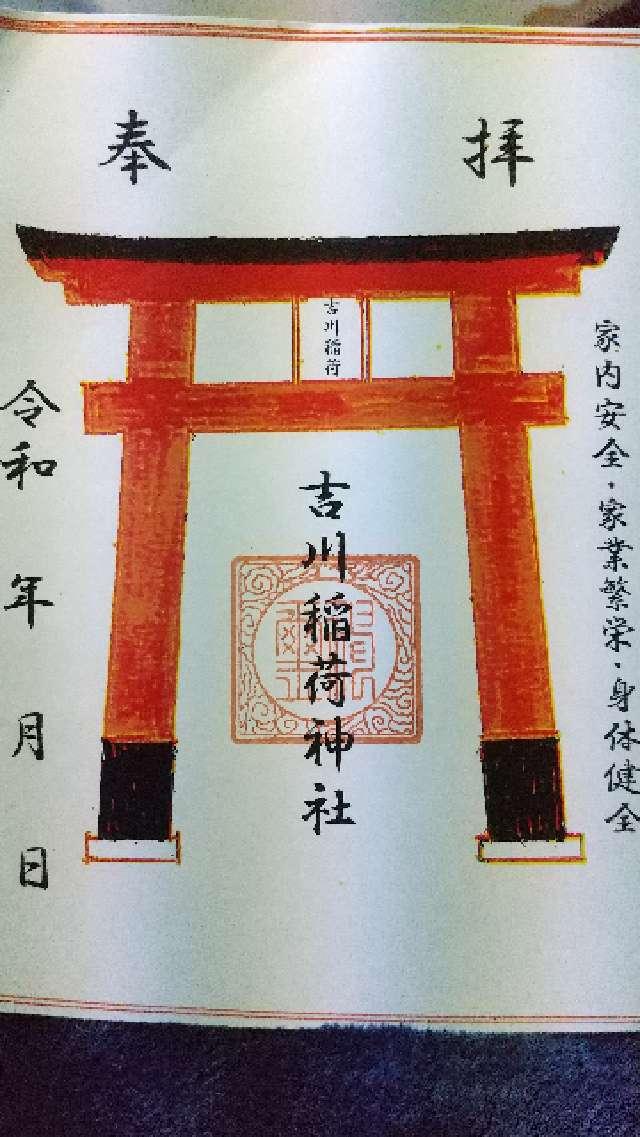 奉拝
家内安全・家業繁栄・身体健全
吉川稲荷
吉川稲荷神社
令和 年 月 日